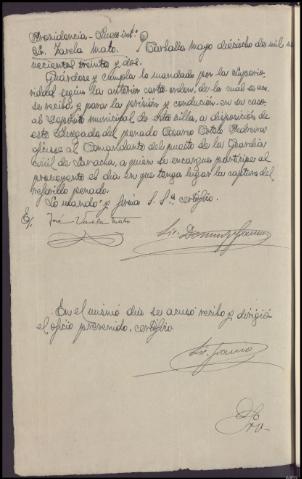 Providencia - Juez int.º
Sr. Varela Mato. Carballo mayo dieciséis de mil no-
vecientos treinta y dos.
Guárdese y cumpla lo mandado por la Superio-
ridad según la anterior carta orden, de la cual se acu-
se recibo y para la prisión y conducción en su caso
al depósito municipal de esta villa, a disposición de
este Juzgado del penado
ofíciese al Comandante del puesto de la Guardia
Civil de Laracha, a quien se encargue participe al
proveyente el día en que tenga lugar la captura del
referido penado.
Lo mandó y firma S. Sª certifico.
José Varela Mato
En el mismo día se acusó recibo y dirigió
el oficio prevenido. certifico